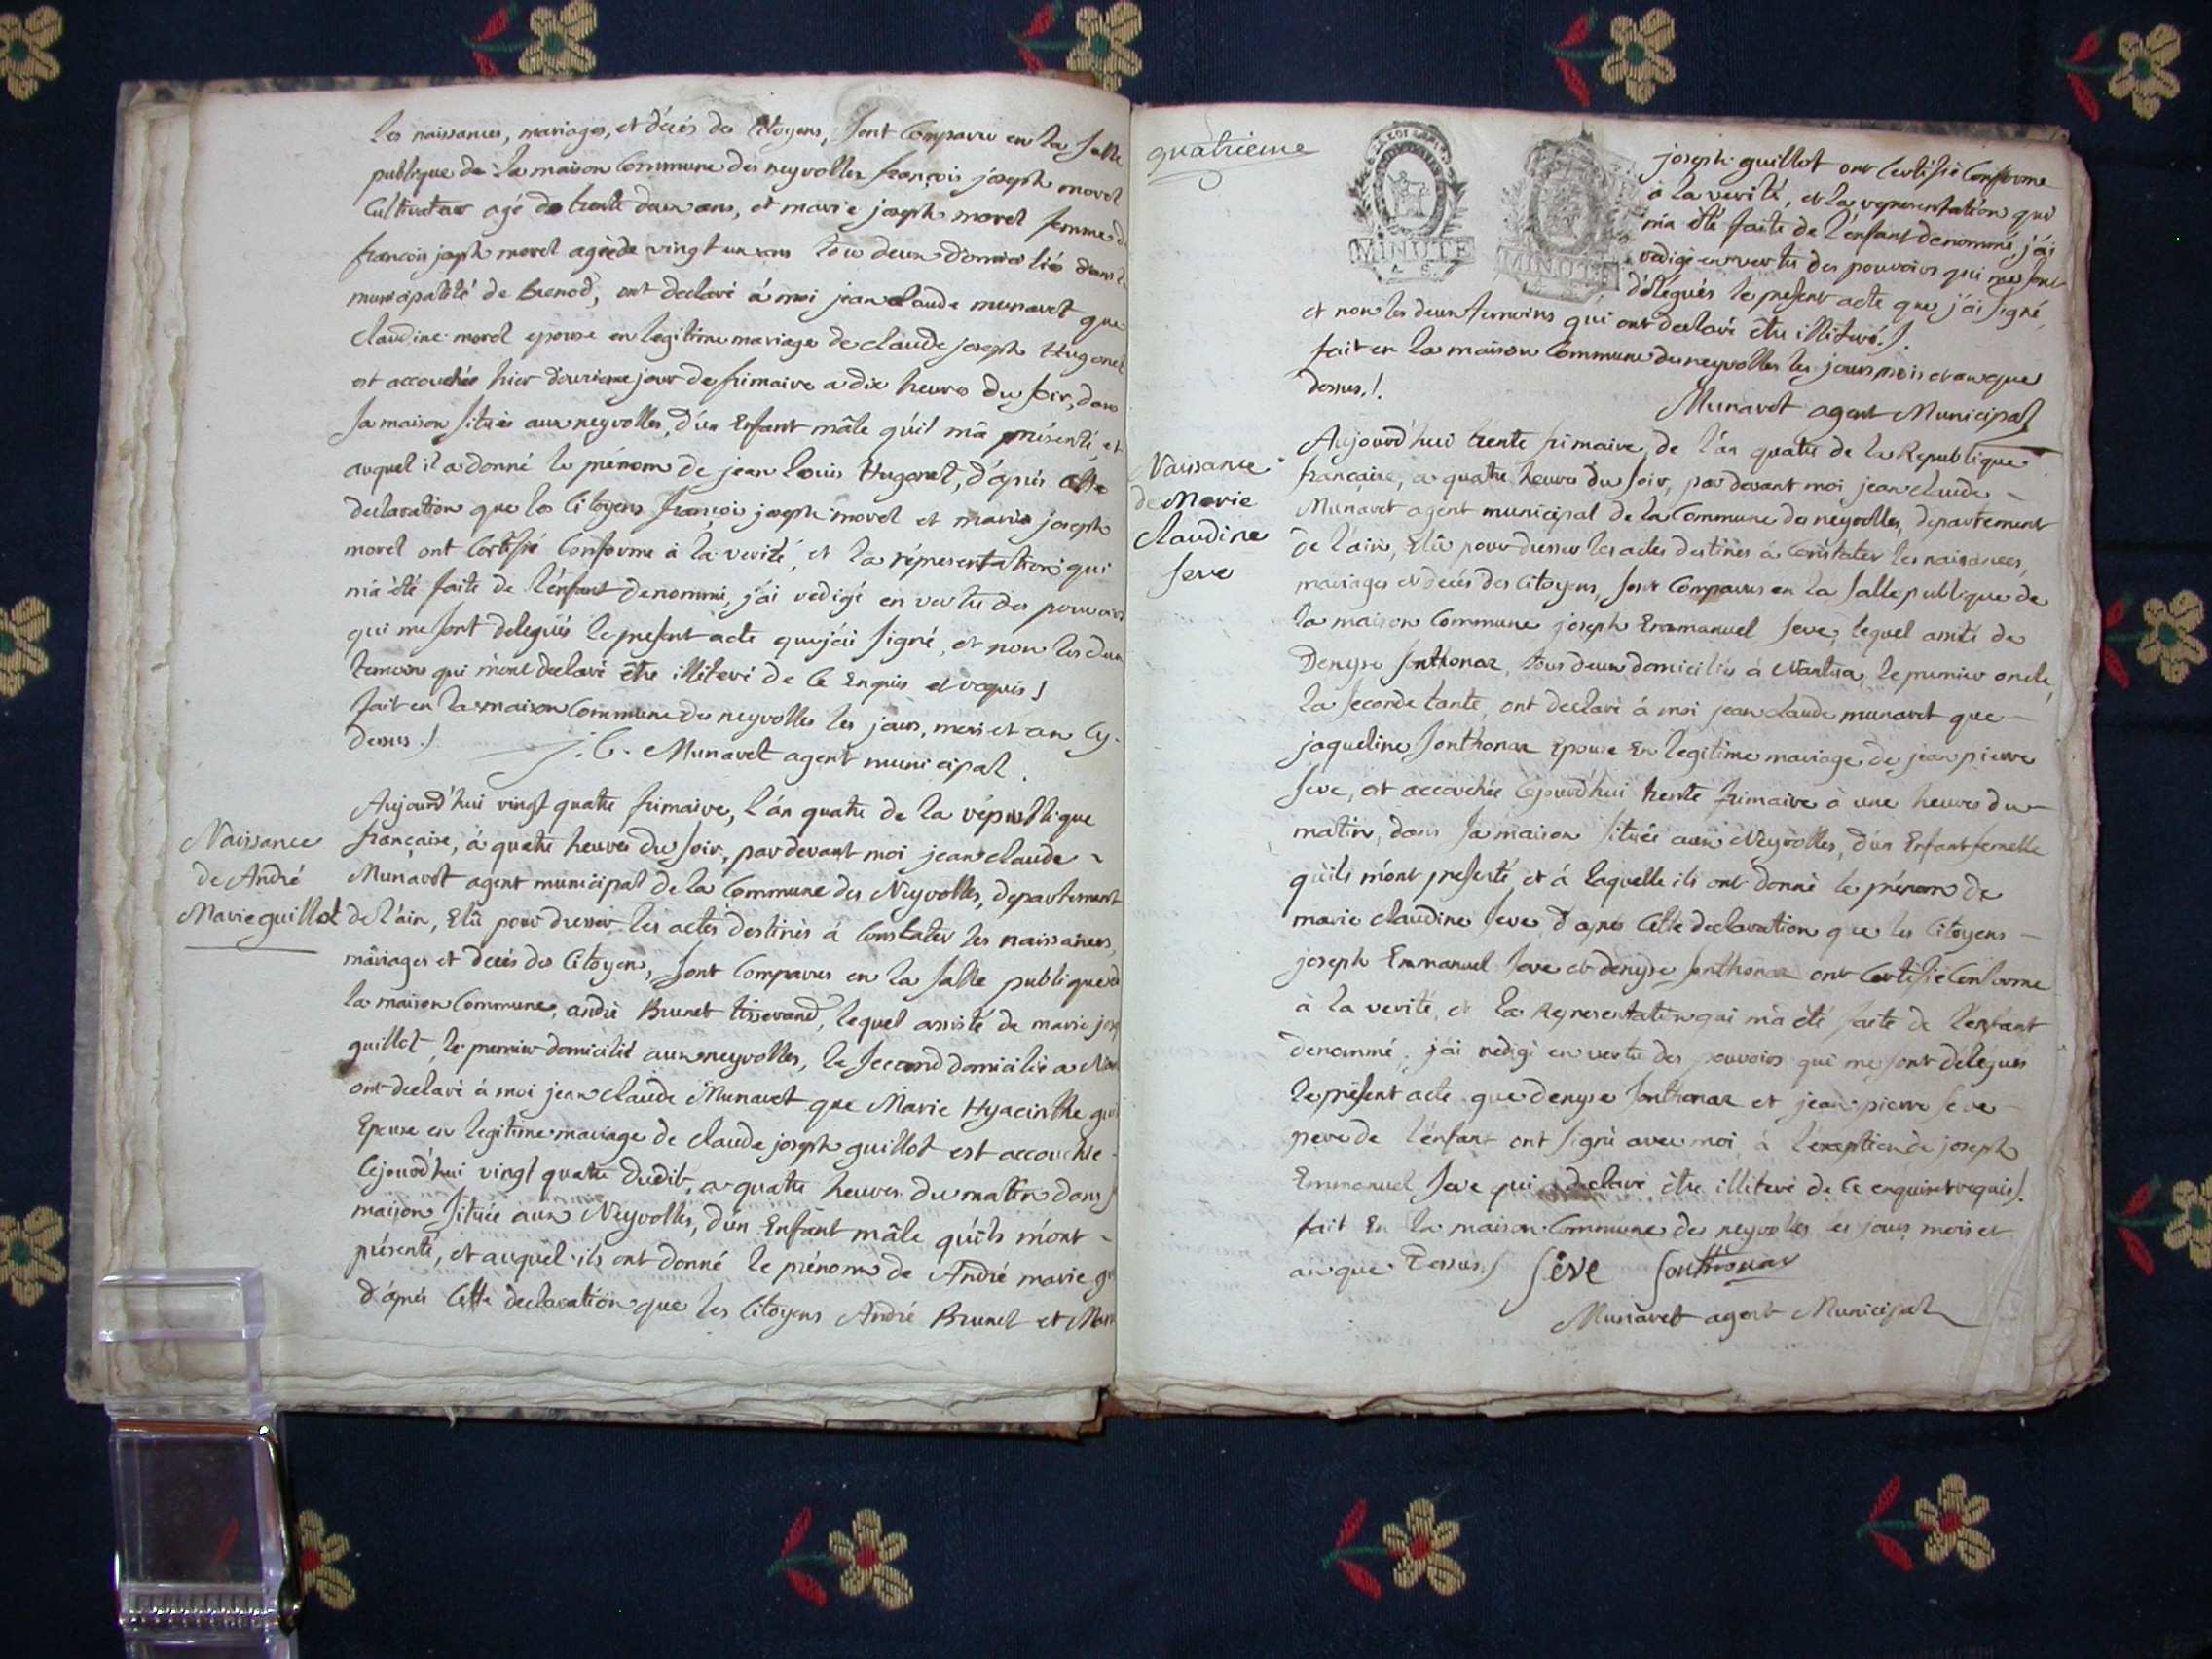 les naissances, mariages, et décés des Citoyens, sont Comparu en la salle
publique de la maison Commune des neyrolles françois joseph morel
Cultivateur agé de trente deux ans, et marie joseph morel femme d
francois joseph morel agée de vingt un ans tous deux domicilies dans l
municipalité de Brenod, ont declaré á moi jean claude munaret que
claudine morel epouse en legitime mariage de claude joseph Hugonet
est accouchée hier jour de frimaire a dix heures du soir, dans
sa maison située aux neyrolles, d'un Enfant mâle qu'il m'a présenté, et
auquel il a donné le prénom de jean louis Hugonet, d'après cette
declaration que les Citoyens françois joseph morel et marie joseph
morel ont Certifié Conforme à la verité, et la répresentation qui
m'a été faite de l'énfant denommé, j'ai redigé en vertu des pouvoirs
qui me sont delegués le present acte que j'ai signé, et non les deux
temoins qui m'ont declaré être illiteré de Ce Enquis et requis
fait en la maison Commune des neyrolles les jour, mois et an Cy-
dessus./.
j. C. Munaret agent municipal.
Naissance
de André
Marie guillot
Aujourd'hui vingt quatre frimaire, l'án quatre de la république
française, á quatre heures du soir, pardevant moi jean claude
Munaret agent municipal de la Commune des Neyrolles, departement
de l'ain, Elû pour dresser les actes destinés á Constater les naissances,
mariages et decés des Citoyens, sont Comparus en la salle publique de
la maison Commune, andré Brunet tisserand, lequel assisté de marie jos
guillot, le premier domicilié aux neyrolles, le second domicilié a
ont declaré á moi jean claude Munaret que Marie Hyacinthe gui
Epouse en legitime mariage de claude joseph guillot est accouchée
Cejourd'hui vingt quatre dudit, a quatre heures du matin dans s
maison située aux Neyrolles, d'un Enfant mâle qu'ils m'ónt
présenté, et auquel ils ont donné le prénom de André marie gu
d'áprés Cette declaration que les Citoyens André Brunet et Mari
quatrieme
LOI
MINUTE
MINUTE
joseph guillot ont Certifié Conforme
a la verité, et la representation qui
m'a été faite de l'énfant denommé, j'ai
redigé en vertu des pouvoirs qui me sont
délégués le present acte que j'ái signé,
et non les deux temoins qui ont declaré être illiteré./.
fait en la maison Commune des neyrolles les jours mois et an que
dessus./.
Munaret agent Municipal
Naissance
de Marie
claudine
seve
Aujourd'hui trente frimaire de l'án quatre de la Republique
française, a quatre heures du soir, par devant moi jean claude
Munaret agent municipal de la Commune des neyrolles, departement
de l'ain, Elû pour dresser les actes destinés á Constater les naissances,
mariages et decés des Citoyens, sont Comparus en la salle publique de
la maison Commune joseph Emmanuel seve, lequel assité de
Denyse Sonthonax, tous deux domiciliés á Nantua, le premier oncle,
la seconde tante, ont declaré á moi jean claude munaret que
jaqueline Sonthonax Epouse En legitime mariage de jean pierre
seve, est accouchée Cejourd'hui trente frimaire à une heures du
matin, dans sa maison située aux Neyrolles, d'un Enfant femelle
qu'ils m'ont presenté, et á laquelle ils ont donné le prénom de
marie claudine seve d'apres Cette declaration que les Citoyens
joseph Emmanuel seve et denyse sonthonax ont Certifié Conforme
à la verité, et la Representation qui m'a été faite de l'enfant
denommé, j'ai redigé en vertu des pouvoirs qui me sont délégués
le présent acte que denyse Sonthonax et jean pierre seve
pere de l'énfant ont signé avec moi, à l'exeption de joseph
Emmanuel seve qui a declaré être illiteré de Ce enquis et requis/.
fait En la maison Commune des neyrolles les jours mois et
an que Dessus./ Séve Sonthonax
Munaret agent Municipal